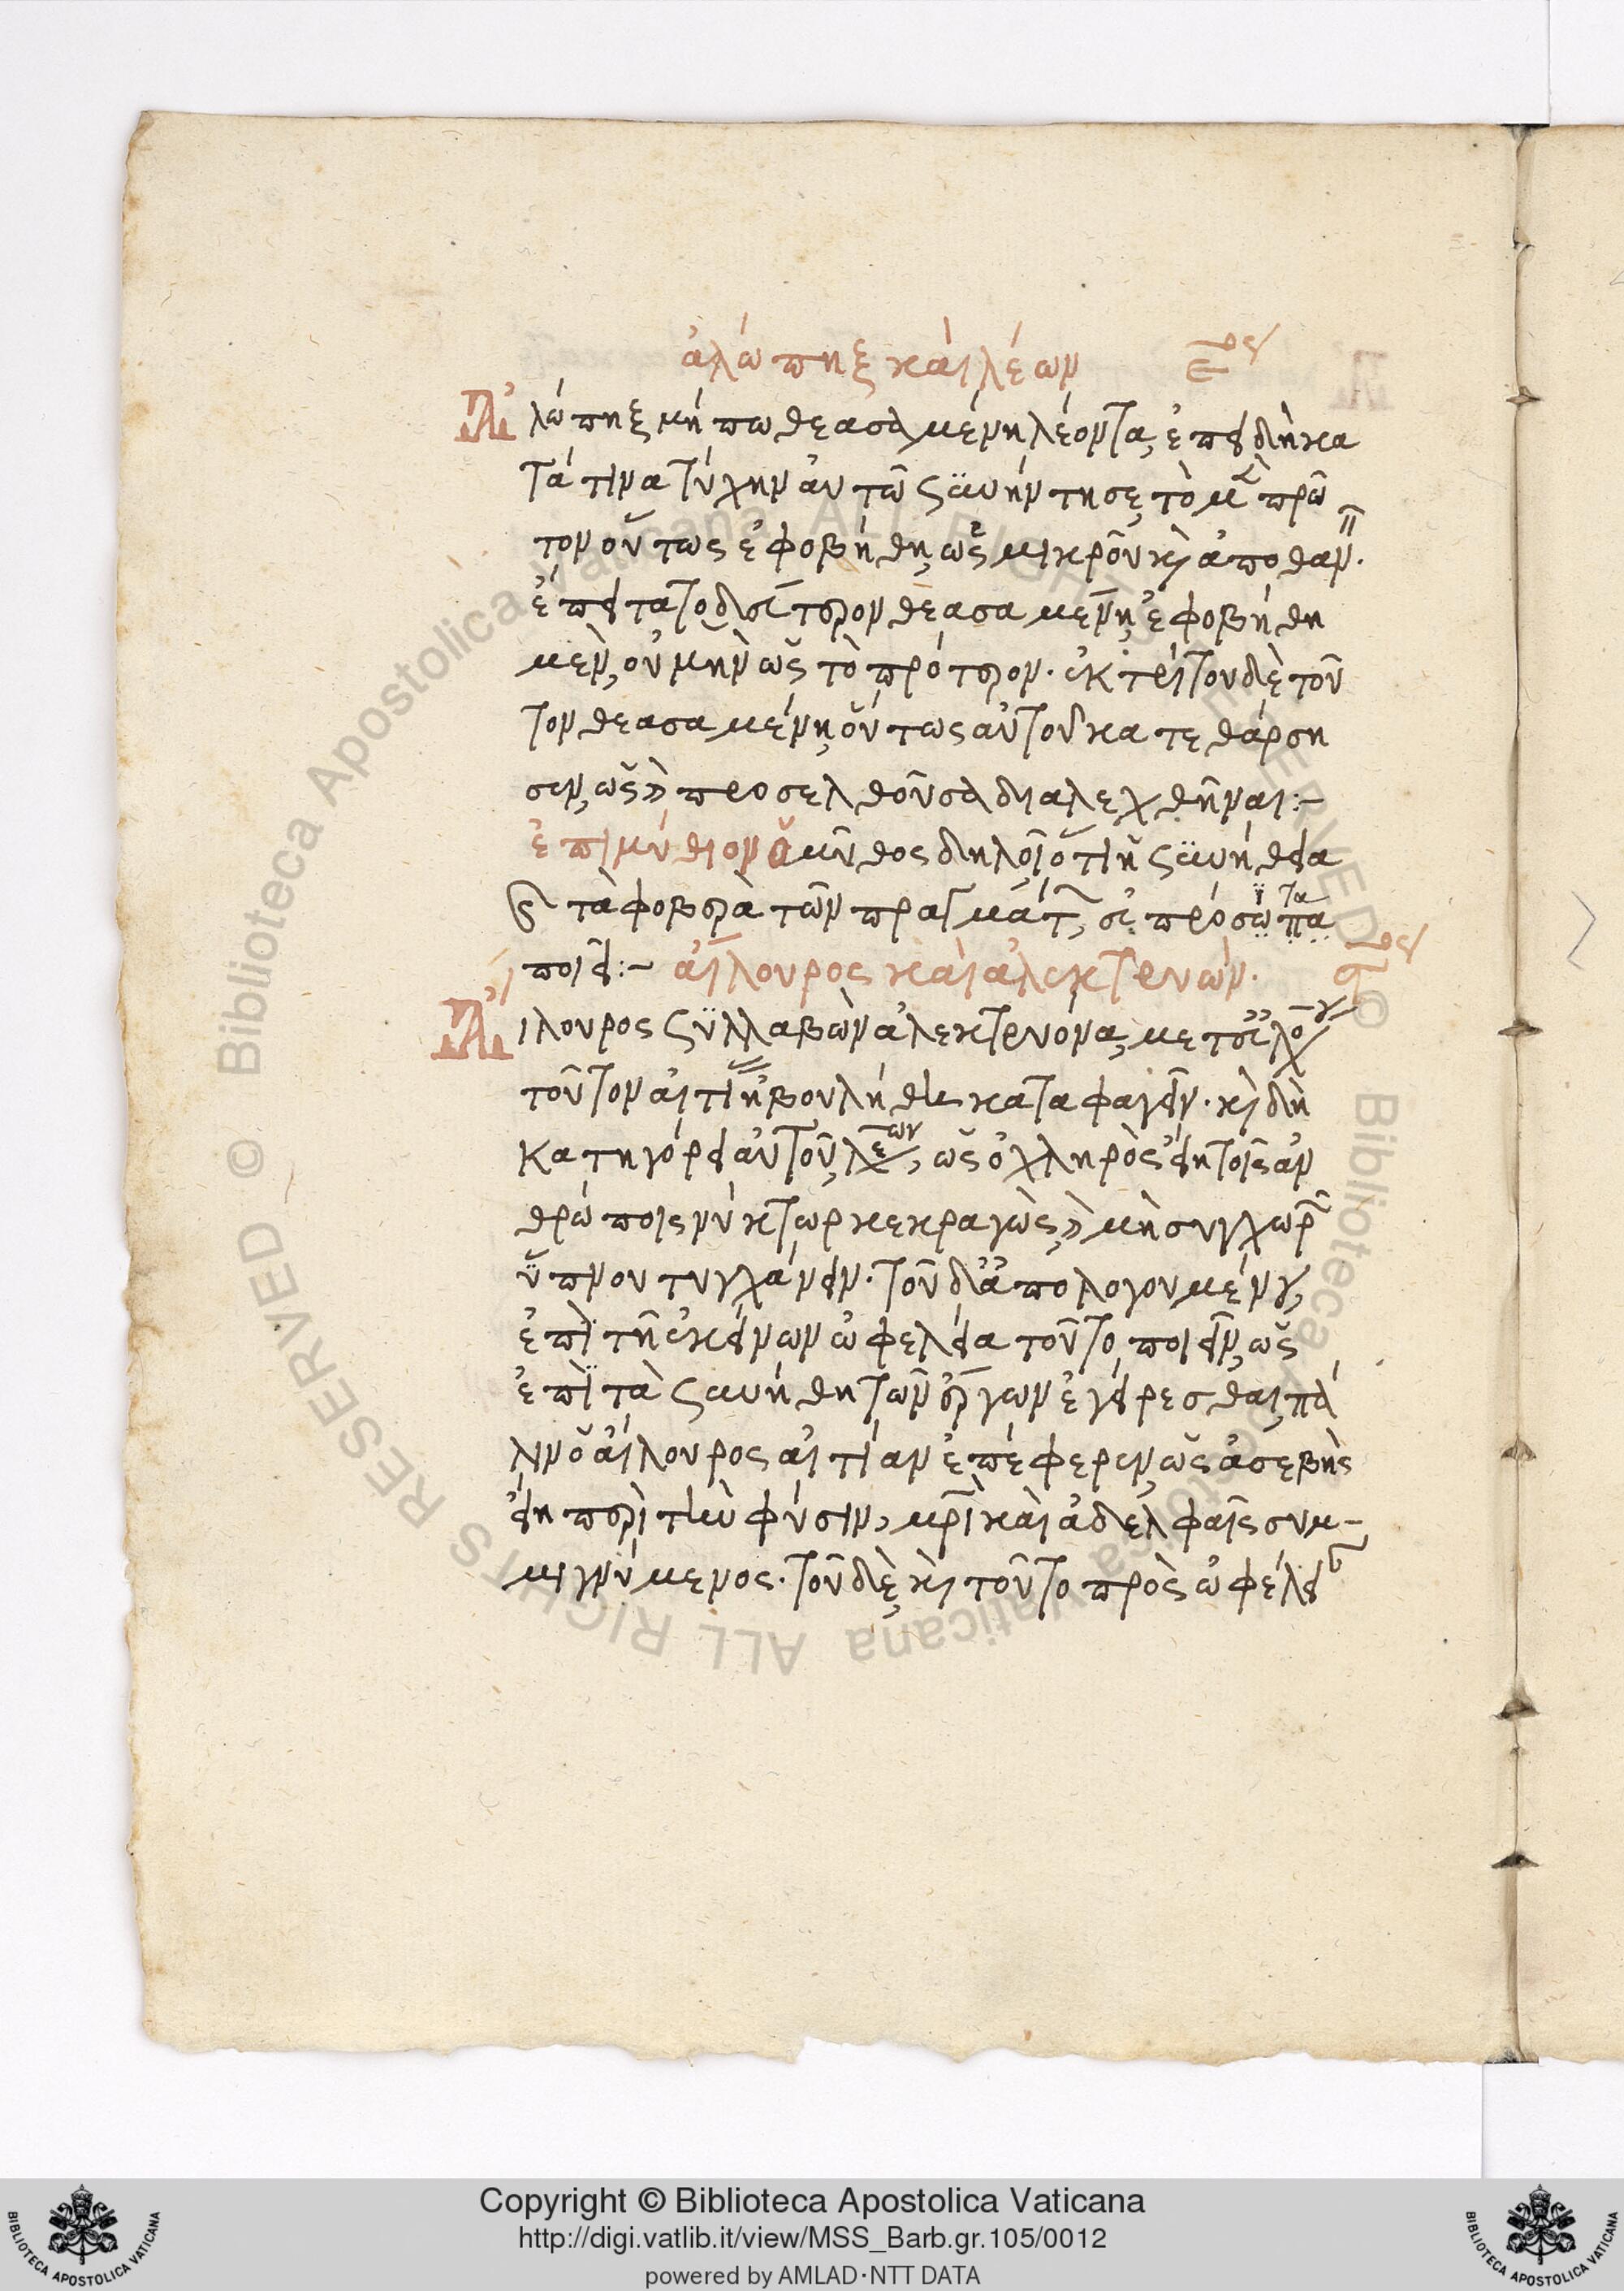 ἀλώπηξ καὶ λέων εος
Ἀλώπηξ μήπω θεασαμένη λέοντα, ἐπειδὴ κα
τά τινα τύχην αὐτῶ συνήντησε, τὸ μὲν πρῶ
τον οὕτως ἐφοβήθη, ὡς μικροῦ καὶ ἀποθαν.
ἔπειτα τὸ δεύτερον θεασαμένη, ἐφοβήθη
μὲν, οὐ μὴν ὡς τὸ πρότερον. ἐκ τρίτου δὲ τοῦ
τον θεασαμένη, οὕτως αὐτοῦ κατεθάρση
σεν, ὡς καὶ προσελθοῦσα διαλεχθῆναι:-
ἐπιμύθιον ὁ μῦθος δηλοῖ ὅτι ἡ συνήθεια
καὶ τὰ φοβερὰ τῶν πραγμάτων, εὐπρόσωπα
ποιεῖ:- αἴλουρος καὶ ἀλεκτρυών. ϛος
Αἴλουρος συλλαβὼν ἀλεκτρυόνα, μετ' εὐλόγου
τοῦτον αἰτίας ἠβουλήθη καταφαγεῖν. καὶ δὴ
κατηγόρει αὐτοῦ, λέγων, ὡς ὀχληρὸς εἴη τοῖς ἀν
θρώποις νύκτωρ κεκραγὼς, καὶ μὴ συγχωρῶν
ὕπνου τυγχάνειν. τοῦ δ' ἀπολογουμένου,
ἐπὶ τῆ ἐκείνων ὠφελεία τοῦτο ποιεῖν, ὡς
ἐπὶ τὰ συνήθη τῶν ἔργων ἐγείρεσθαι, πά
λιν ὁ αἴλουρος αἰτίαν ἐπέφερεν, ὡς ἀσεβὴς
εἴη περὶ τὴν φύσιν, μητρὶ καὶ ἀδελφαῖς συμ-
μιγνύμενος. τοῦ δὲ, καὶ τοῦτο πρὸς ὠφέλειαν
Copyright © Biblioteca Apostolica Vaticana
http://digi.vatlib.it/view/MSS_Barb.gr.105/0012
powered by AMLAD·NTT DATA